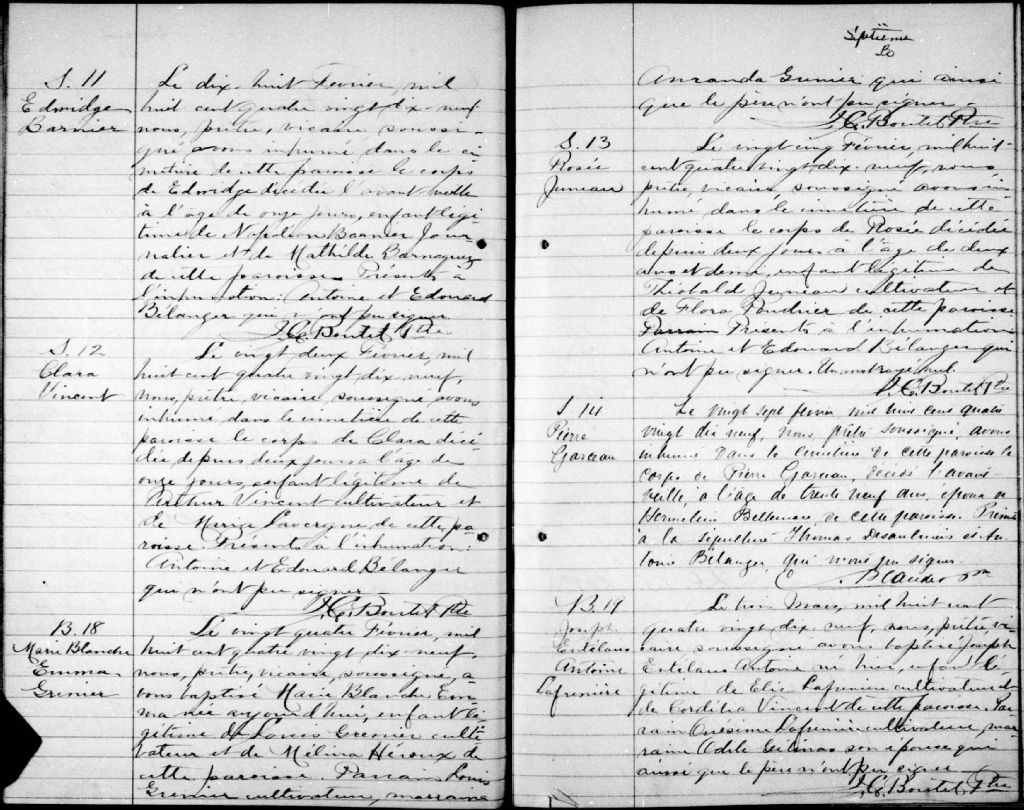 S. 11
Edwidge
Barnier
Le dix-huit Février, mil
huit cent quatre vingt dix-neuf
nous, prêtre, vicaire soussi-
gné avons inhumé dans le ci
metière de cette paroisse le corps
de Edwidge décédée l'avant veille
à l'âge de onze jours, enfant légi
time de Napoléon Barnier Jour
nalier et de Mathilde
de cette paroisse. Présents à
l'inhumation: Antoine et Edouard
Bélanger qui n'ont pu signer
J.C. Boutet Ptre
S. 12
Clara
Vincent
Le vingt deux Février, mil
huit cent quatre vingt dix neuf,
nous, prêtre, vicaire, soussigné avons
inhumé dans le cimetière de cette
paroisse le corps de Clara décé
dée depuis deux jours à l'âge de
onze jours, enfant légitime de
Arthur Vincent cultivateur et
de Maria Lavergne de cette pa-
roisse. Présents à l'inhumation:
Antoine et Edouard Bélanger
qui n'ont pu signer
J.C. Boutet Ptre
B. 18
Marie Blanche
Emma
Grenier
Le vingt quatre Février, mil
huit cent quatre vingt dix-neuf,
nous, prêtre, vicaire, soussigné, a
vons baptisé Marie Blanche Em
ma née aujourd'hui, enfant lé
gitime de Louis Grenier culti
vateur et de Mélina Héroux de
cette paroisse. Parrain Louis
Grenier cultivateur, marraine
Septième
Amanda Grenier qui ainsi
que le père n'ont pu signer.
J.C. Boutet Ptre
S. 13
Rosée
Juneau
Le vingt cinq Février, mil huit-
cent quatre vingt dix neuf, nous
prêtre, vicaire soussigné avons in
humé dans le cimetière de cette
paroisse le corps de Rosée décédée
depuis deux jours à l'âge de deux
ans et demi, enfant légitime de
Juneau cultivateur et
de Flora de cette paroisse
Parrain Présents à l'inhumation
Antoine et Edouard Bélanger qui
n'ont pu signer. Un mot rayé nul.
J.C. Boutet Ptre
S 14
Pierre
Garceau
Le vingt sept février mil huit cent quatre
vingt dix neuf, nous, prêtre soussigné, avons
inhumé dans le cimetière de cette paroisse le
corps de Pierre Garceau, décédé l'avant
veille, à l'âge de trente neuf ans, époux de
Bellemare, de cette paroisse. Présents
à la sépulture Thomas Desaulniers et An
toine Bélanger, qui n'ont pu signer.
B. 19
Joseph
Antoine
Lafrenière
Le trois Mars, mil huit cent
quatre vingt dix neuf, nous, prêtre, vi-
caire soussigné avons baptisé Joseph
Antoine né hier, enfant lé
gitime de Elie Lafrenière cultivateur et
de Cordélia Vincent de cette paroisse. Par
rain Onésime Lafrenière cultivateur, mar
raine Adèle Gélinas son épouse qui
ainsi que le père n'ont pu signer
J.C. Boutet, Ptre